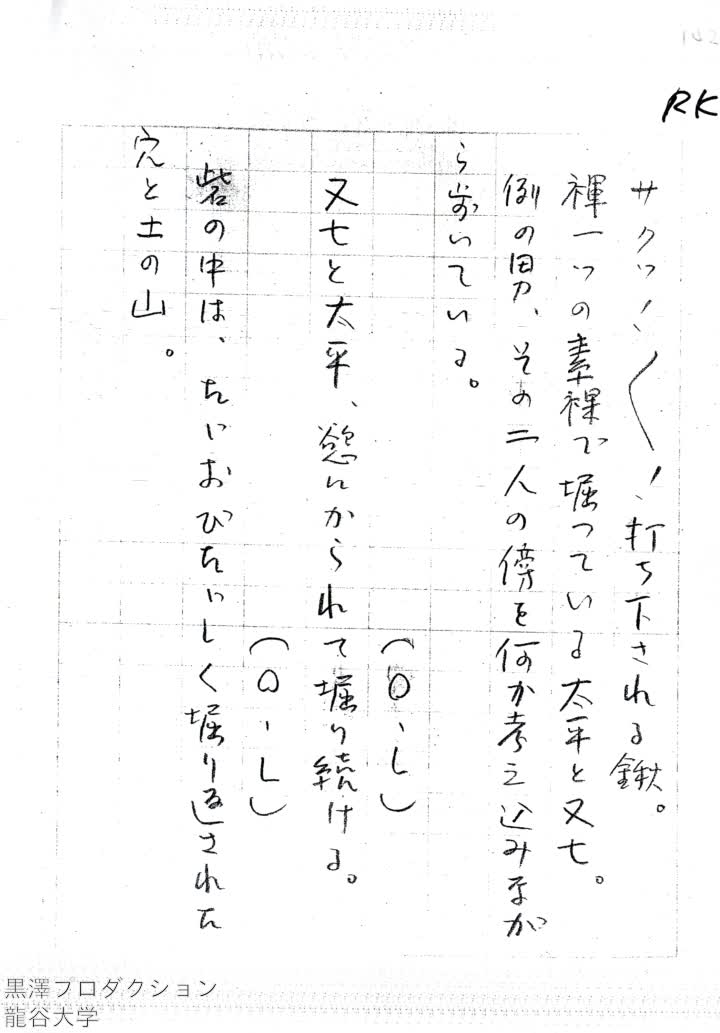 RK
サクッ！〱！打ち下される鍬。
褌一つの素裸で堀っている太平と又七。
例の男、その二人の傍を何か考え込みなが
ら歩いている。
(O・L)
又七と太平、慾にかられて堀り続ける。
(O・L)
砦の中は、たゞおびたゞしく堀り返された
穴と土の山。
黒澤プロダクション
龍谷大学